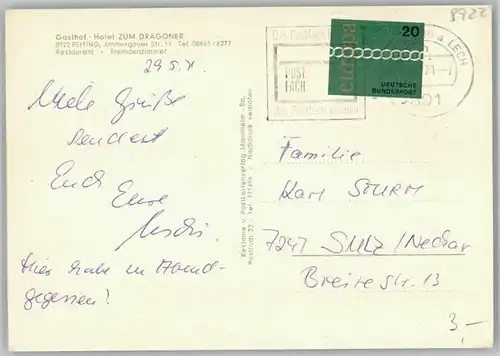 Gasthof - Hotel ZUM DRAGONER
8922 PEITING, Ammergauer Str. 11 Tel. 08861/6277
Restaurant • Fremdenzimmer
29.5.71
Viele Grüße
sendet
Euch Eure
Hier habe im Abend-
gegessen!
Reklame u. Postkartenverlag Mannheim
Postfach 22 • Nachdruck verboten
8922
Das Postfach
POST
FACH
das Postfach
LECH
europa
20
DEUTSCHE
BUNDESPOST
Familie
Karl STURM
7247 SULZ/Neckar
Breite Str. 13
3,-